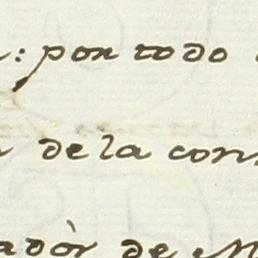 : por todo
de la con
ador de M